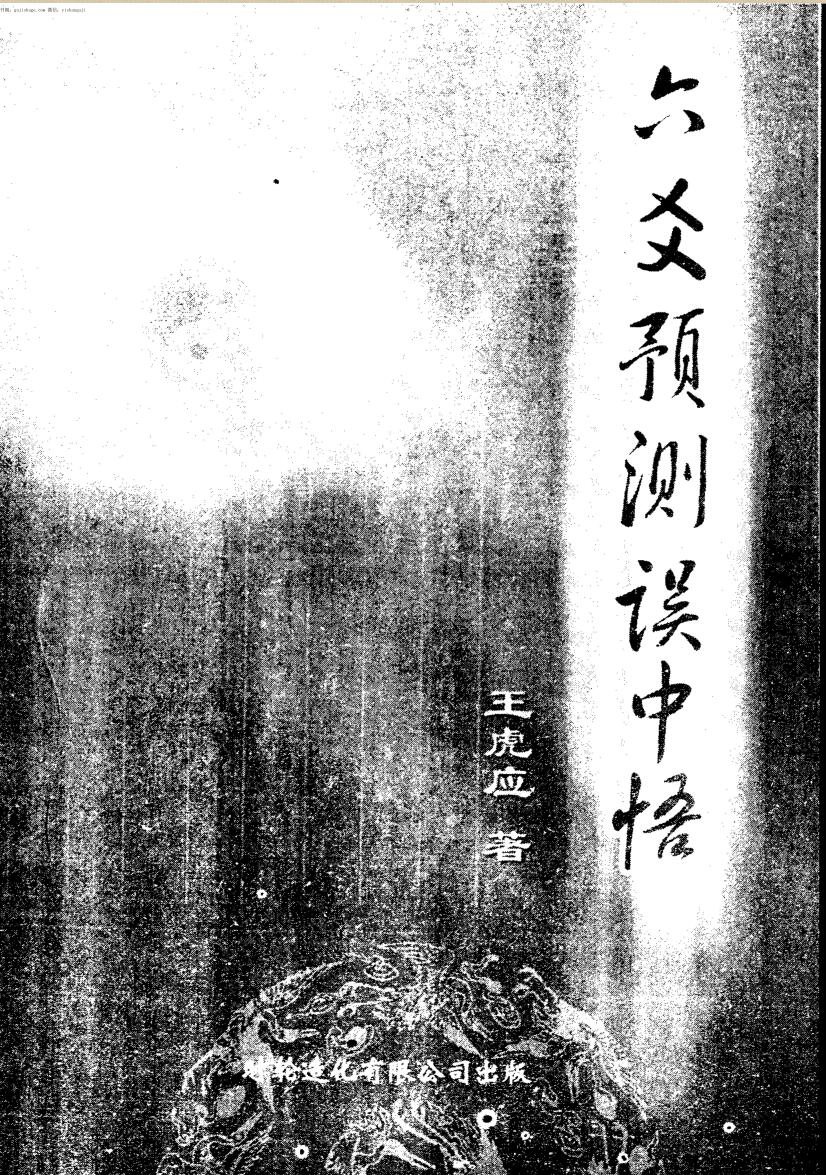 六爻预测误中悟
王虎应 著
时轮造化有限公司出版